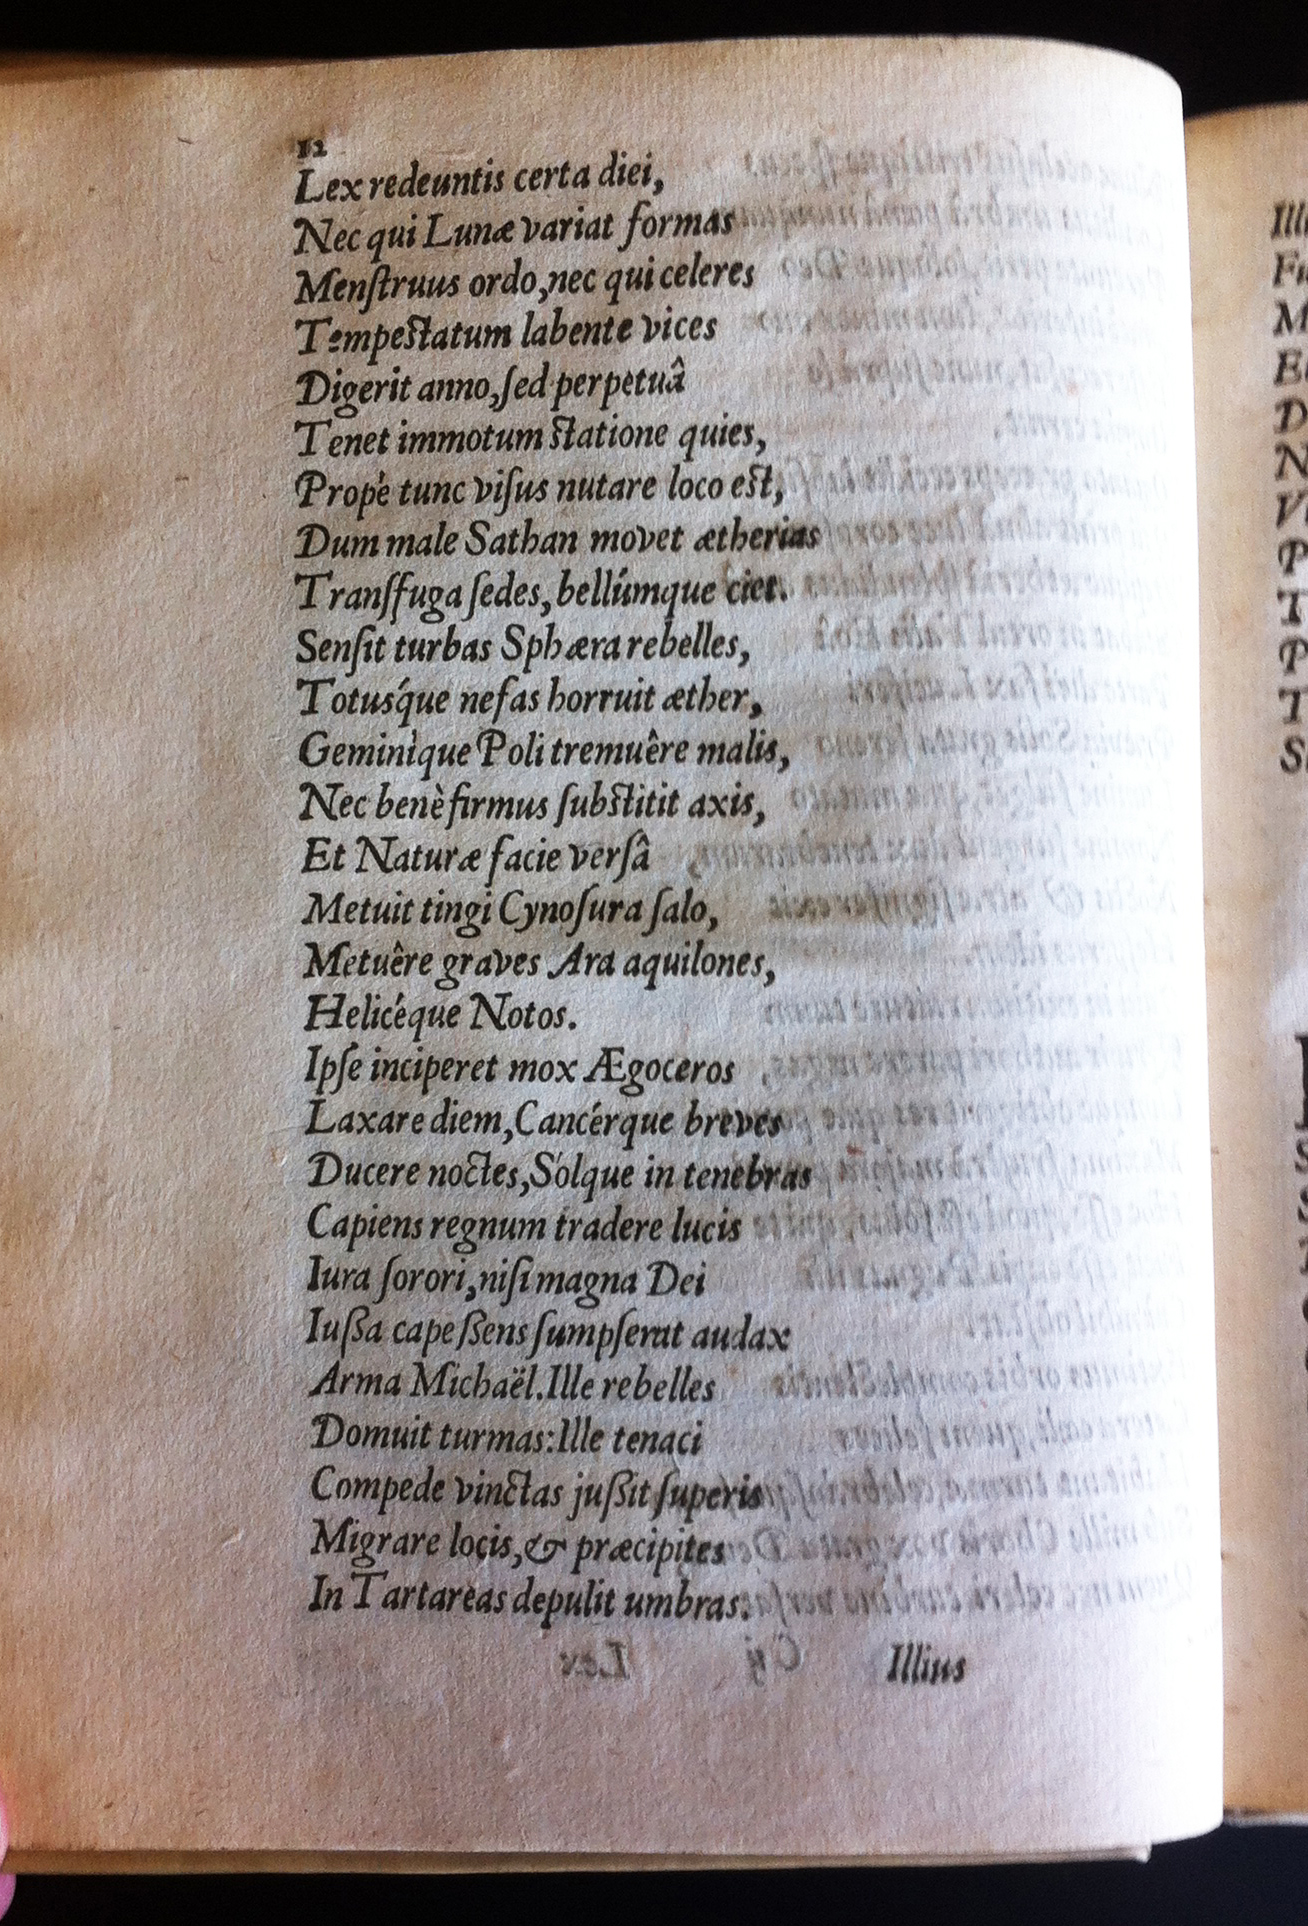 12
Lex redeuntis certa diei,
Nec qui Lunæ variat formas
Menſtruus ordo, nec qui celeres
Tempeſtatum labente vices
Digerit anno, ſed perpetuâ
Tenet immotum ſtatione quies,
Propè tunc viſus nutare loco eſt,
Dum male Sathan movet ætherias
Tranſfuga ſedes, bellúmque ciet.
Senſit turbas Sphæra rebelles,
Totusq́ue nefas horruit æther,
Geminìque Poli tremuêre malis,
Nec benè firmus ſubſtitit axis,
Et Naturæ facie verſâ
Metuit tingi Cynoſura ſalo,
Metuêre graves Ara aquilones,
Helicéque Notos.
Ipſe inciperet mox Ægoceros
Laxare diem, Cancérque breves
Ducere noctes, Sólque in tenebras
Capiens regnum tradere lucis
Iura ſorori, niſi magna Dei
Iuſſa capeſſens ſumpſerat audax
Arma Michaël. Ille rebelles
Domuit turmas: Ille tenaci
Compede vinctas juſſit ſuperis
Migrare locis, & præcipites
In Tartareas depulit umbras.
Illius
Ill
M
D
N
P
T
P
T